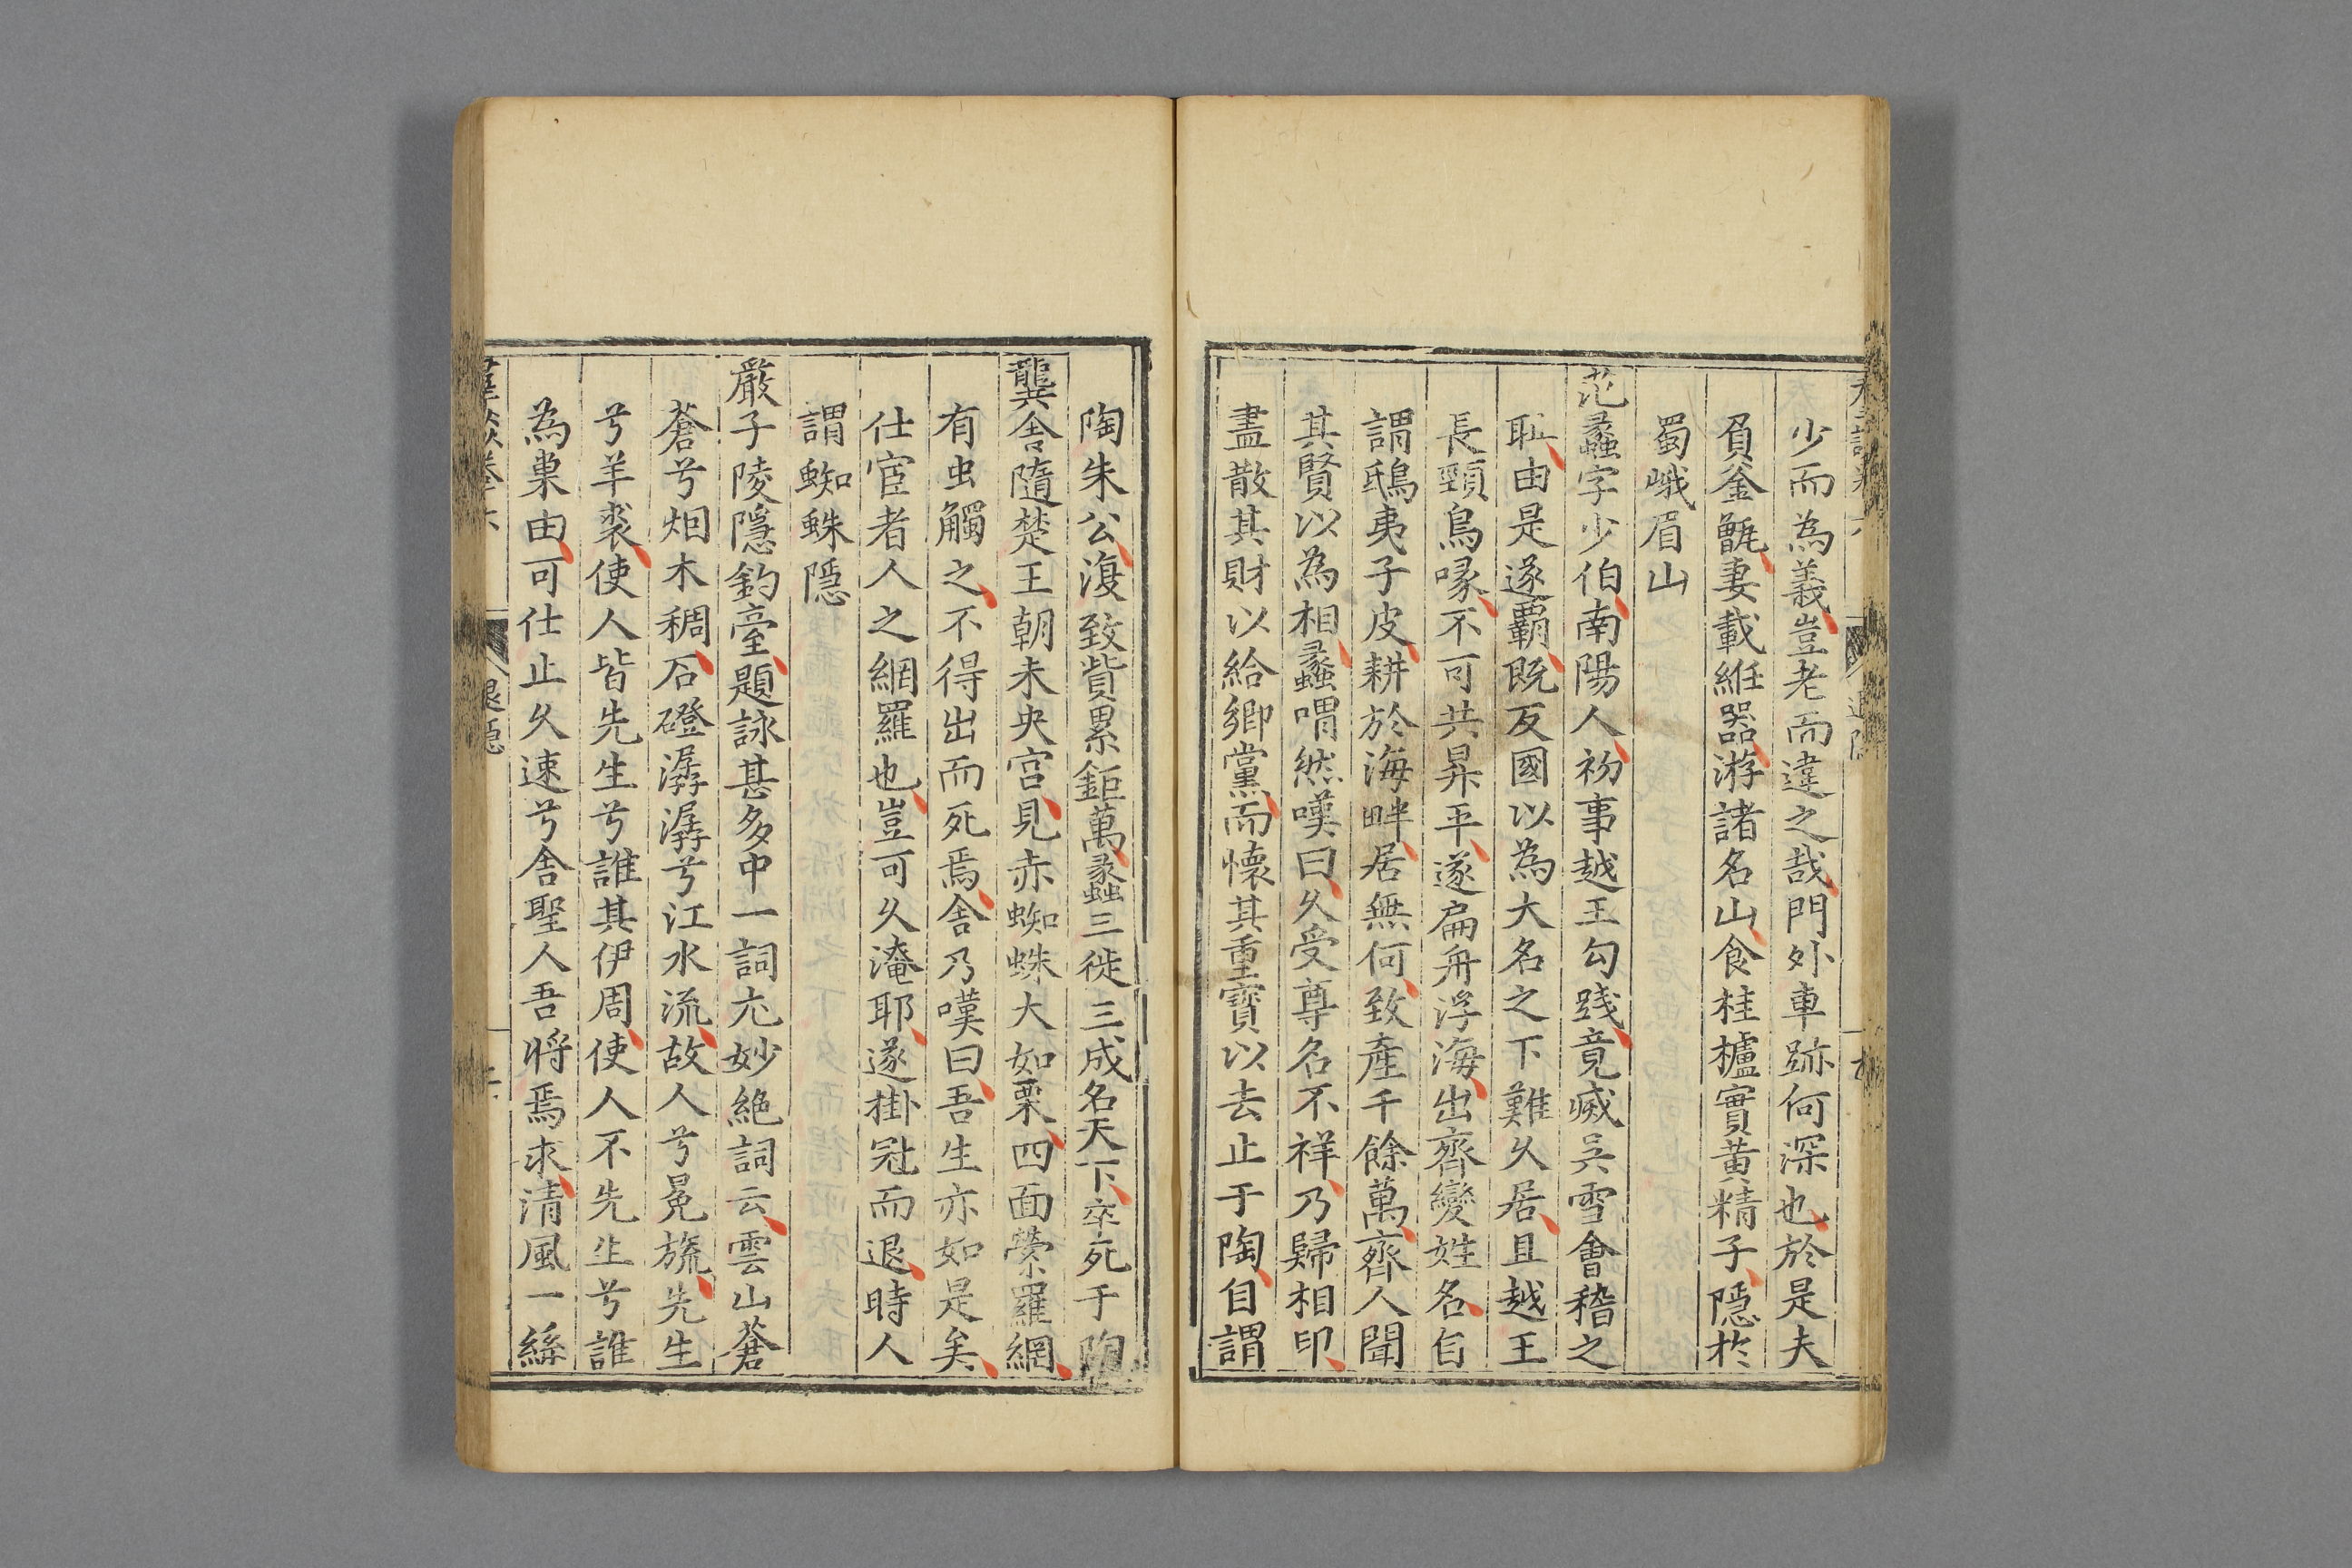 少而為義豈老而違之哉門外車跡何深也於是夫
負釜甑妻載絍器游諸名山食桂櫨實黃精子隱於
蜀峨眉山
范蠡字少伯南陽人初事越王勾踐竟滅吳雪會稽之
恥由是遂霸既反國以為大名之下難久居且越王
長頸鳥喙不可共昇平遂扁舟浮海出齊變姓名自
謂鴟夷子皮耕於海畔居無何致產千餘萬齊人聞
其賢以為相蠡喟然嘆曰久受尊名不祥乃歸相印
盡散其財以給鄉黨而懷其重寶以去止于陶自謂
陶朱公復致貲累鉅萬蠡三徙三成名天下卒死于陶
龔舍隨楚王朝未央宮見赤蜘蛛大如栗四面縈羅網
有虫觸之不得出而死焉舍乃嘆曰吾生亦如是矣
仕宦者人之網羅也豈可久淹耶遂掛冠而退時人
謂蜘蛛隱
嚴子陵隱釣臺題詠甚多中一詞尢妙絶詞云雲山蒼
蒼兮烟木稠石磴潺潺兮江水流故人兮冕旒先生
兮羊裘使人皆先生兮誰其伊周使人不先生兮誰
為巢由可仕止久速兮舍聖人吾將焉求清風一絲
退隱